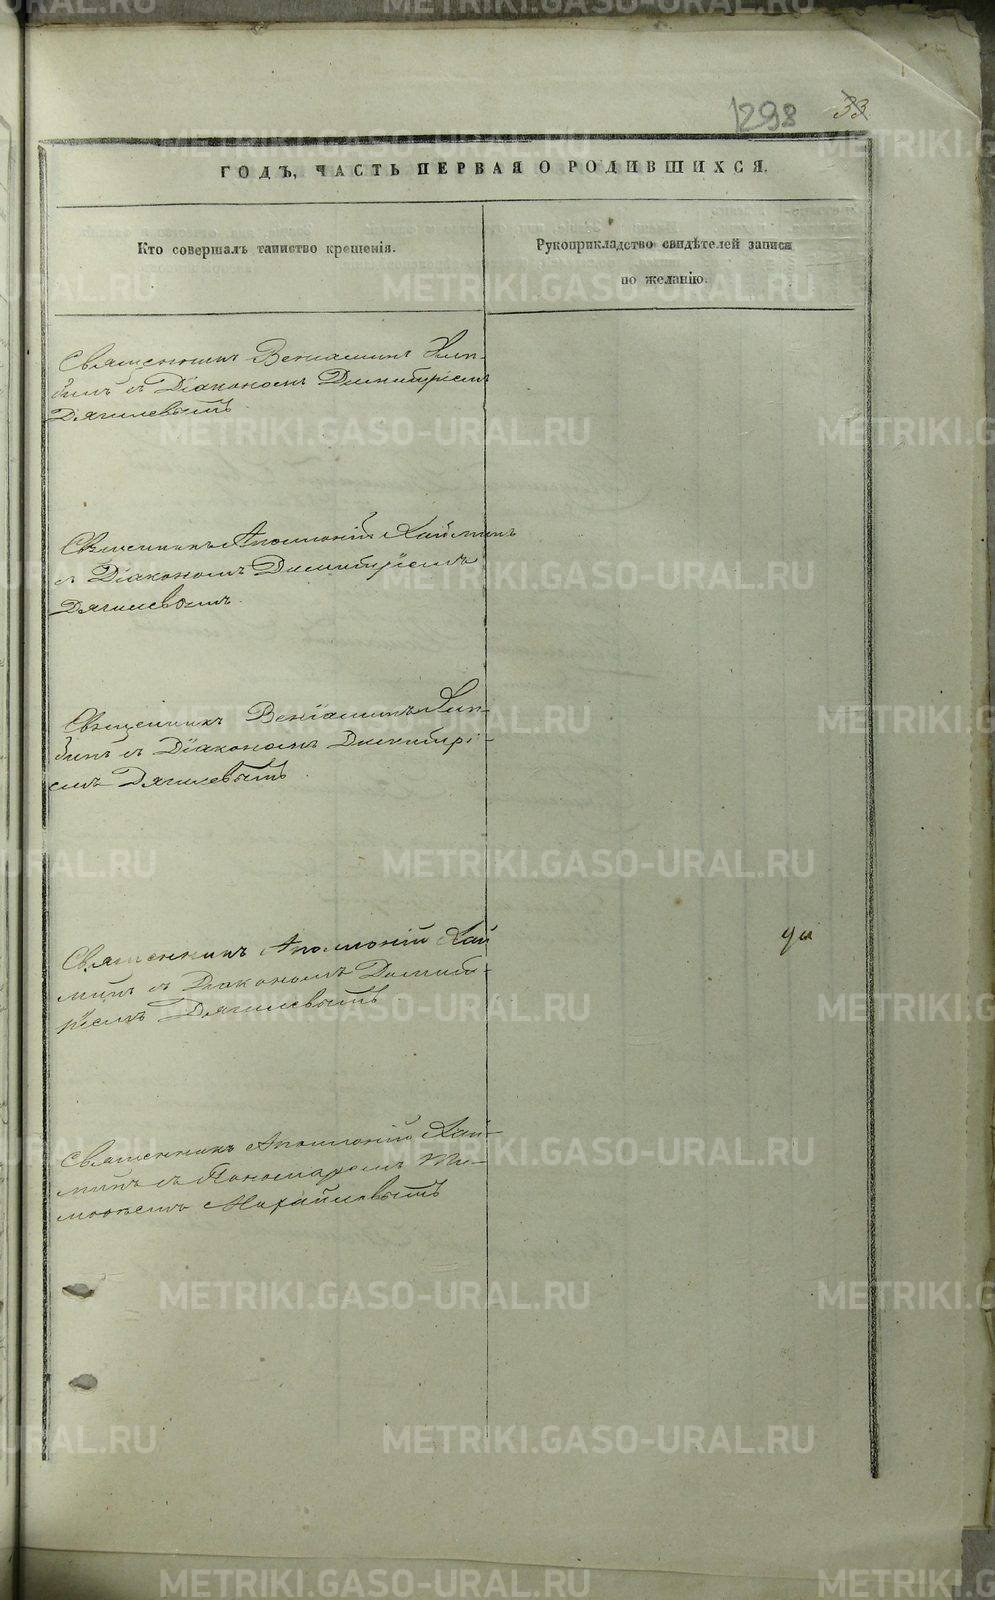 1298 33
ГОДЪ, ЧАСТЬ ПЕРВАЯ О РОДИВШИХСЯ.
Кто совершалъ таинство крещенія.
Рукоприкладство свидѣтелей записи
по желанію.
Священникъ Веніаминъ
съ Діакономъ Димитріемъ
Дягилевымъ
Священникъ Аполлоній Хай
съ Діакономъ Димитріемъ
Дягилевымъ.
Священникъ Веніаминъ
съ Діакономъ Димитрі-
емъ Дягилевымъ.
Священникъ Аполлоній Хай
минъ съ Діакономъ Димит-
ріемъ Дягилевымъ.
Священникъ Аполлоній Хай-
минъ съ Пономаремъ Ти-
моѳеемъ Михайловымъ
METRIKI.GASO-URAL.RU